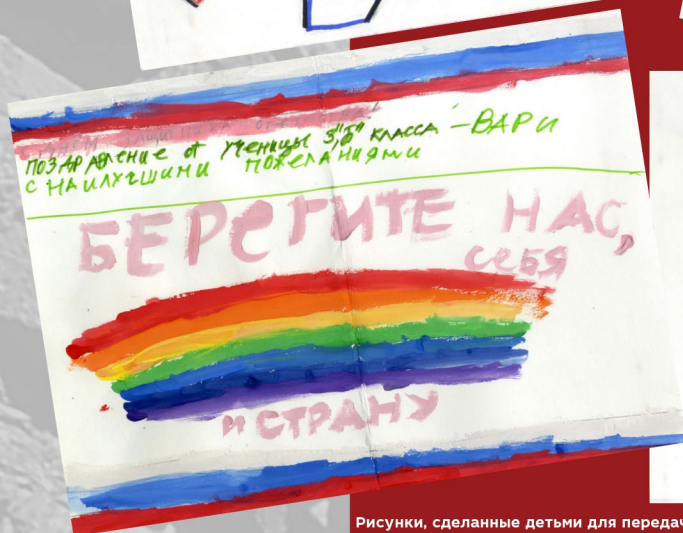 поздравление от ученицы 3"б" класса -ВАРИ
с наилучшими пожеланиями
БЕРЕГИТЕ НАС,
себя
и СТРАНУ
Рисунки, сделанные детьми для